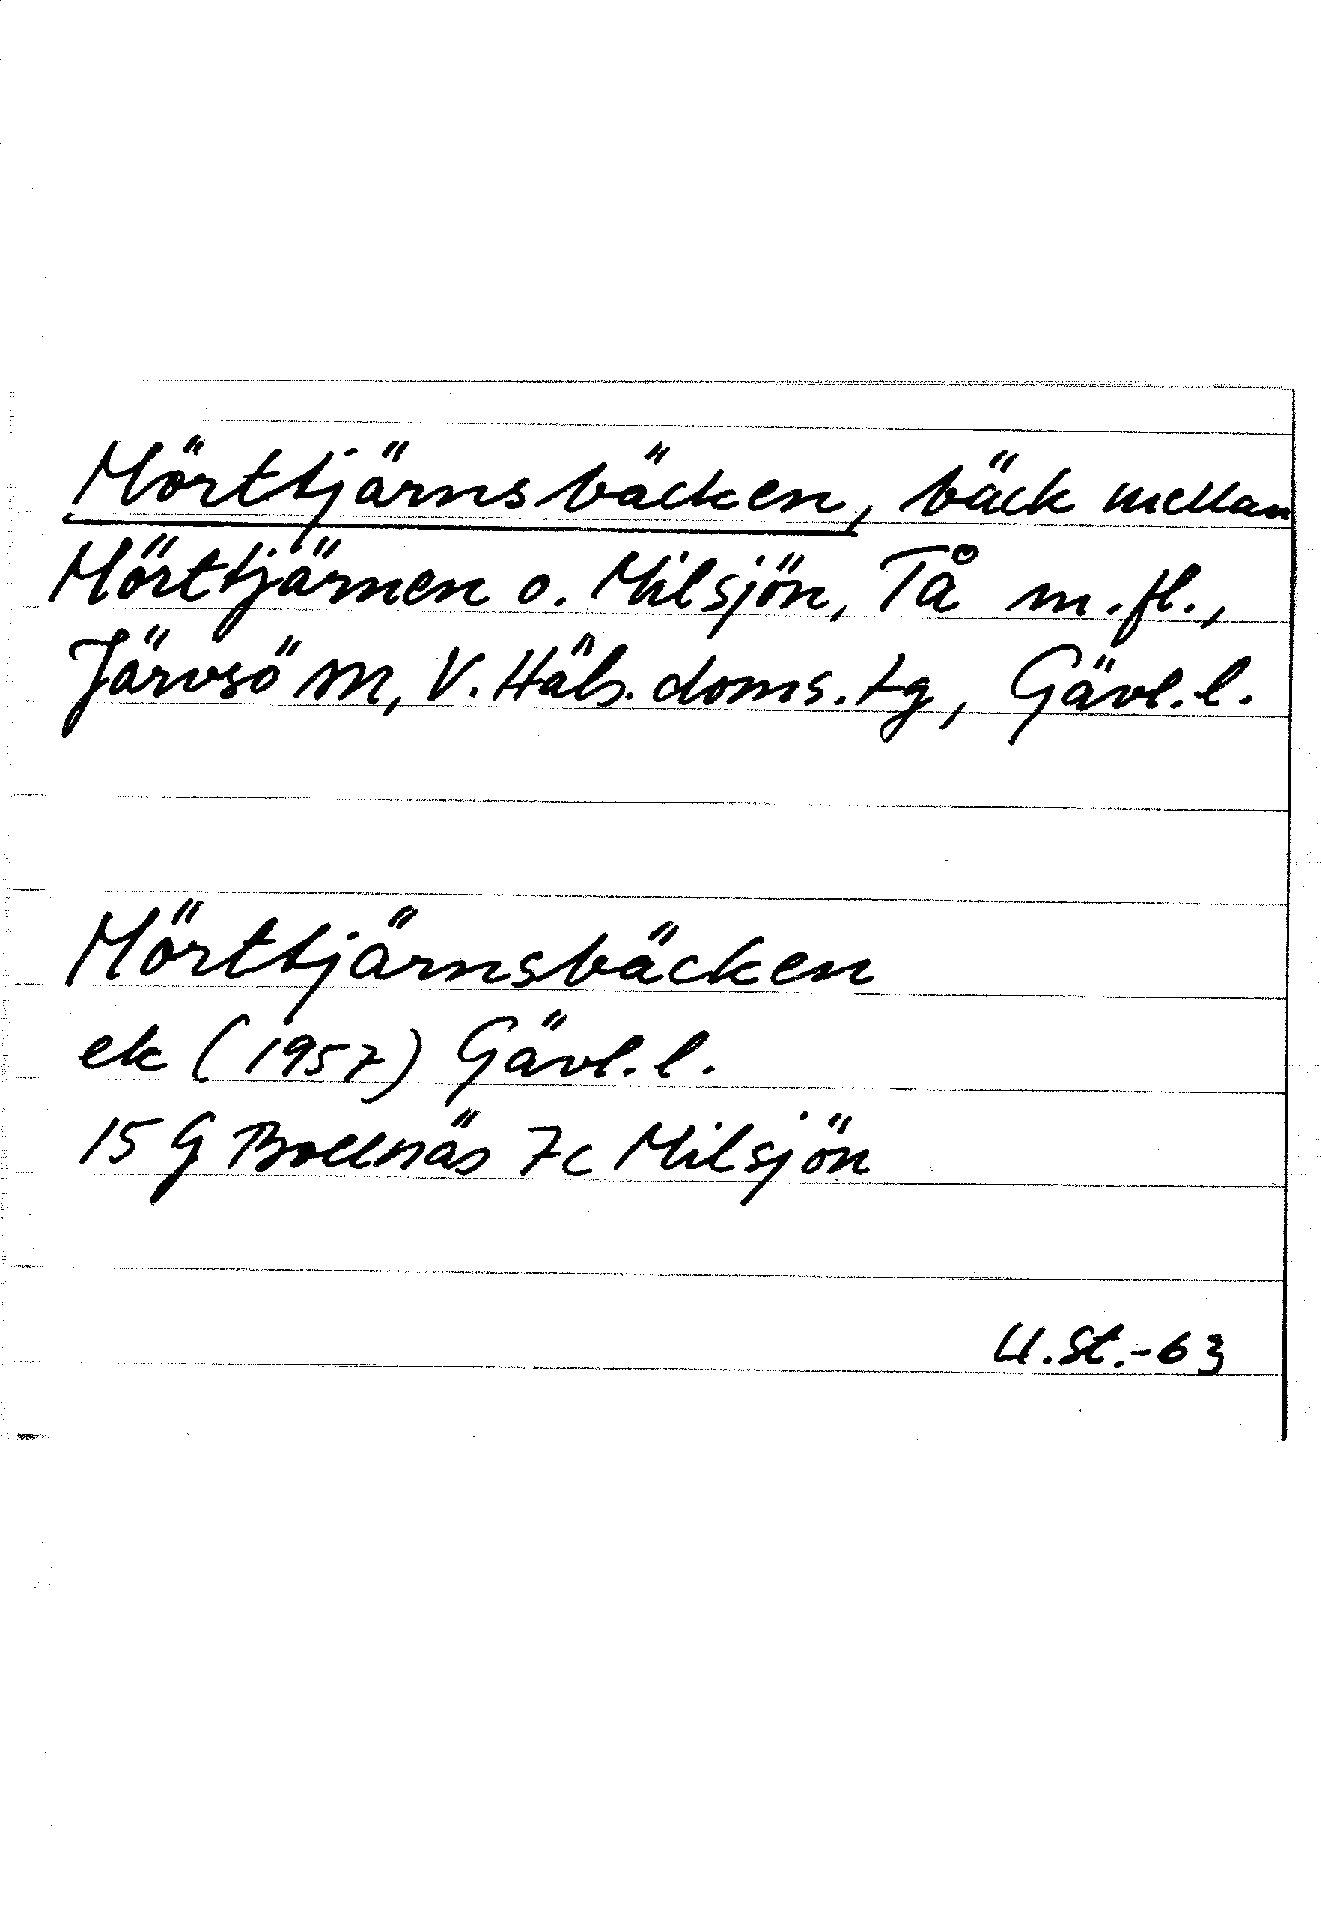 Mörttjärnsbäcken, bäck mellan
Mörttjärnen o. Milsjön, Tå m.fl.,
Järvsö sn, V. Häls. doms.tg, Gävl.l.
Mörttjärnsbäcken
ek (1957) Gävl.l.
15 G Bollnäs 7c Milsjön
U.St.-63